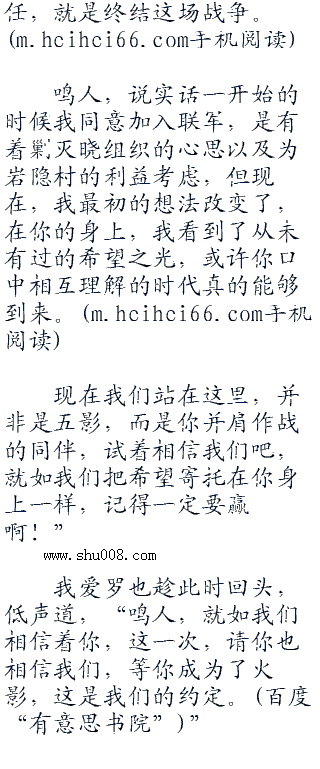 任，就是终结这场战争。
(m.hcihci66.com手机阅读)
鸣人，说实话一开始的
时候我同意加入联军，是有
着剿灭晓组织的心思以及为
岩隐村的利益考虑，但现
在，我最初的想法改变了，
在你的身上，我看到了从未
有过的希望之光，或许你口
中相互理解的时代真的能够
到来。(m.hcihci66.com手机
阅读)
现在我们站在这里，并
非是五影，而是你并肩作战
的同伴，试着相信我们吧，
就如我们把希望寄托在你身
上一样，记得一定要赢
啊！”
www.shu008.com
我爱罗也趁此时回头，
低声道，“鸣人，就如我们
相信着你，这一次，请你也
相信我们，等你成为了火
影，这是我们的约定。(百度
“有意思书院”)”